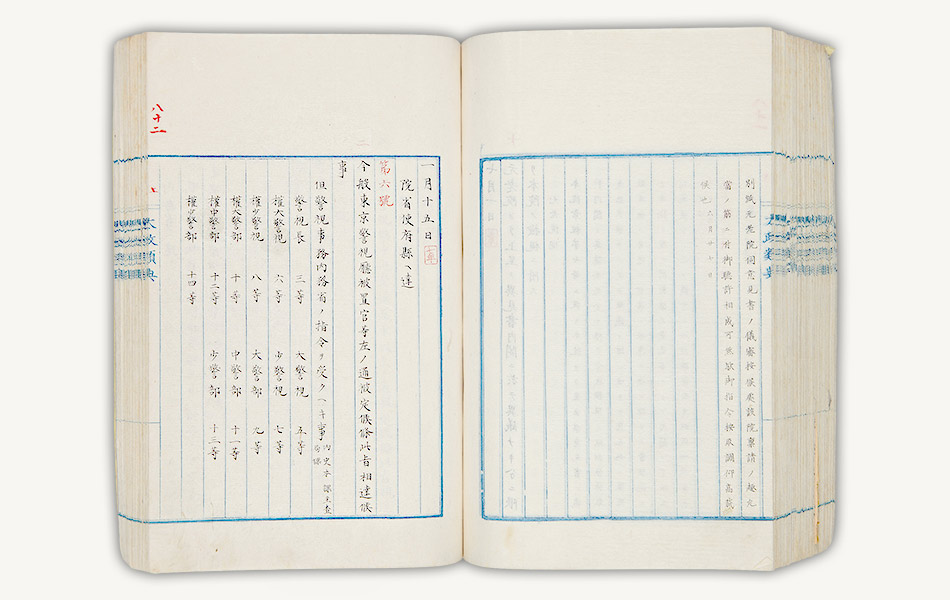 別紙元老院伺意見書ノ儀審按候處該院稟請ノ趣元
當ノ筋ニ付御聴許相成可然歟御指令按取調仰高裁
候也 六月十日
一月十五日
院省使府縣ヘ達
第六號
今般東京警視廳被置官等左ノ通被定候條此旨相達候
事
但警視事務内務省ノ指令ヲ受クヘキ事
警視長 三等 大警視 五等
權大警視 六等 少警視 七等
權少警視 八等 大警部 九等
權大警部 十等 中警部 十一等
權中警部 十二等 少警部 十三等
權少警部 十四等
八十二
太政類典
太政類典